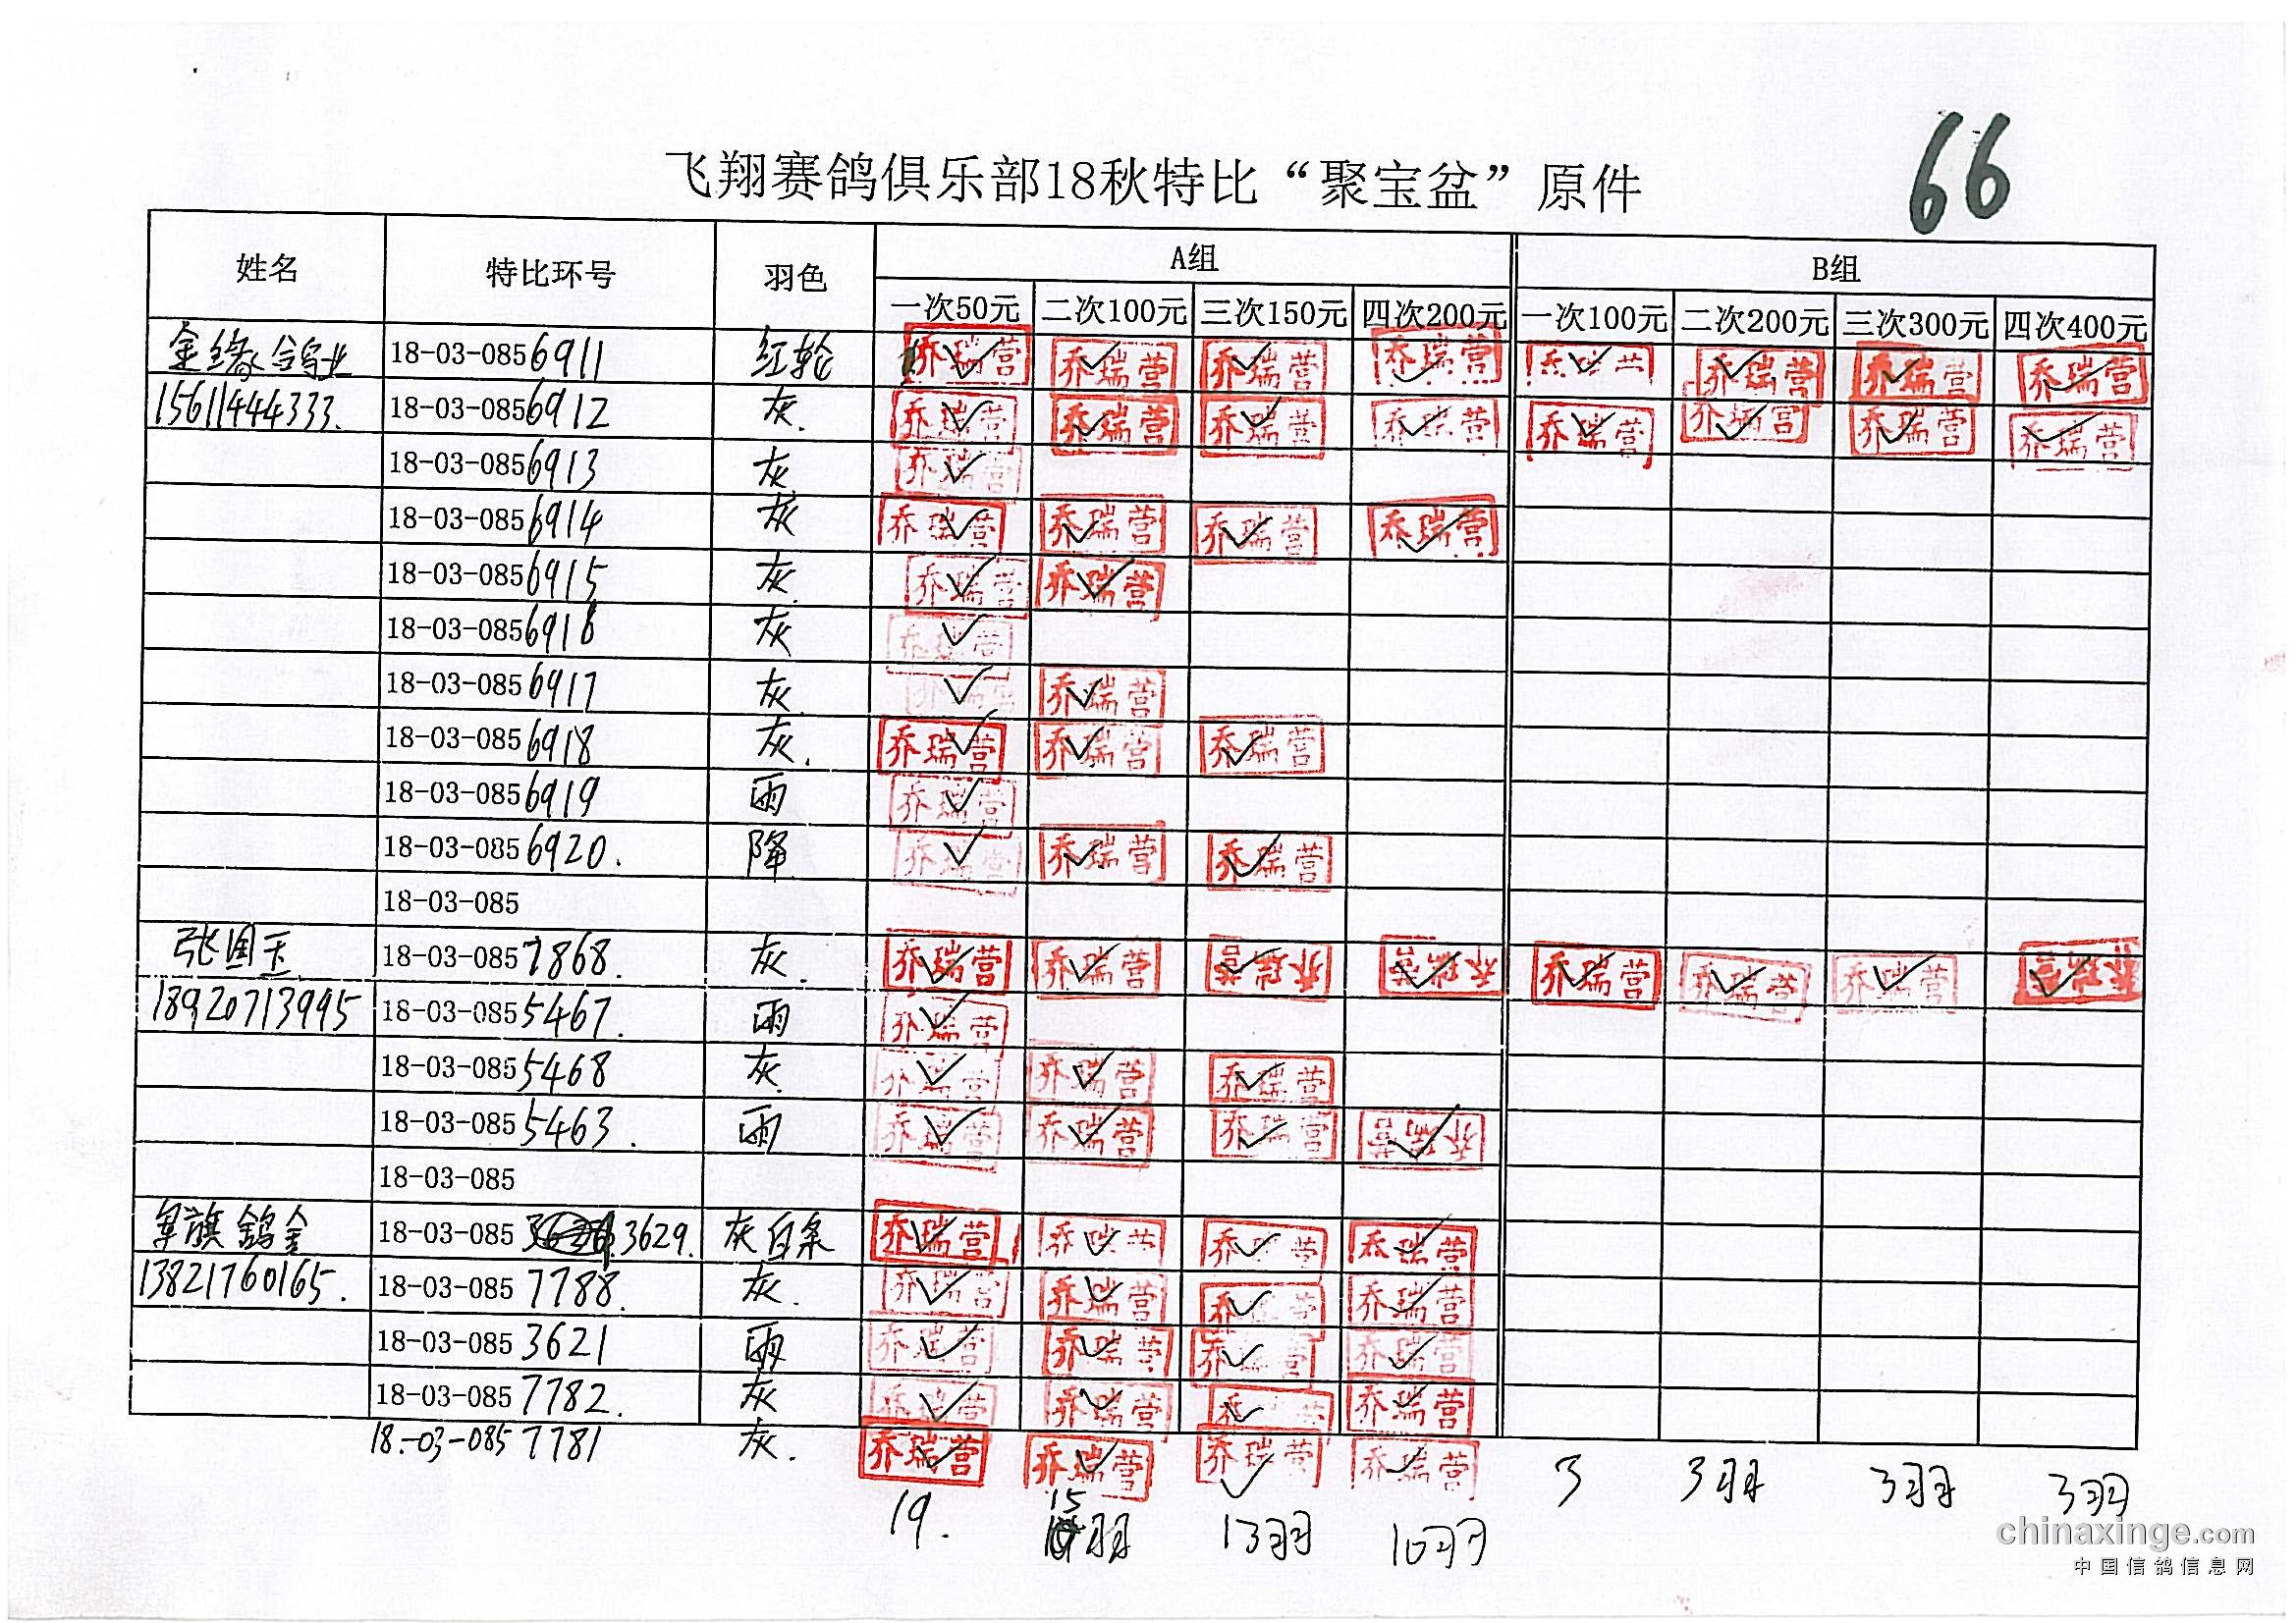 66
飞翔赛鸽俱乐部18秋特比“聚宝盆”原件
姓名 特比环号 羽色 A组 B组
一次50元 二次100元 三次150元 四次200元 一次100元 二次200元 三次300元 四次400元
金缘鸽业 18-03-0856911 红轮 ✓乔瑞营 ✓乔瑞营 ✓乔瑞营 ✓乔瑞营 ✓乔瑞营 ✓乔瑞营 ✓乔瑞营 ✓乔瑞营
15611444333. 18-03-0856912 灰. ✓乔瑞营 ✓乔瑞营 ✓乔瑞营 ✓乔瑞营 ✓乔瑞营 ✓乔瑞营 ✓乔瑞营 ✓乔瑞营
18-03-0856913 灰 ✓乔瑞营
18-03-0856914 灰 ✓乔瑞营 ✓乔瑞营 ✓乔瑞营 ✓乔瑞营
18-03-0856915 灰. ✓乔瑞营 ✓乔瑞营
18-03-0856916 灰 ✓乔瑞营
18-03-0856917 灰. ✓乔瑞营 ✓乔瑞营
18-03-0856918 灰. ✓乔瑞营 ✓乔瑞营 ✓乔瑞营
18-03-0856919 雨 ✓乔瑞营
18-03-0856920. 降 ✓乔瑞营 ✓乔瑞营 ✓乔瑞营
18-03-085
张国玉 18-03-0857868. 灰. ✓乔瑞营 ✓乔瑞营 ✓乔瑞营 ✓乔瑞营 ✓乔瑞营 ✓乔瑞营 ✓乔瑞营 ✓乔瑞营
18920713995 18-03-0855467. 雨 ✓乔瑞营
18-03-0855468 灰. ✓乔瑞营 ✓乔瑞营 ✓乔瑞营
18-03-0855463. 雨 ✓乔瑞营 ✓乔瑞营 ✓乔瑞营 ✓乔瑞营
18-03-085
军旗鸽舍 18-03-085 3629. 灰白条 ✓乔瑞营 ✓乔瑞营 ✓乔瑞营 ✓乔瑞营
13821760165. 18-03-0857788. 灰. ✓乔瑞营 ✓乔瑞营 ✓乔瑞营 ✓乔瑞营
18-03-0853621 雨 ✓乔瑞营 ✓乔瑞营 ✓乔瑞营 ✓乔瑞营
18-03-0857782. 灰 ✓乔瑞营 ✓乔瑞营 ✓乔瑞营 ✓乔瑞营
18.-03-0857781 灰. ✓乔瑞营 ✓乔瑞营 ✓乔瑞营 ✓乔瑞营
19. 15羽 13羽 10羽 3 3羽 3羽 3羽
chinaxinge.com
中国信鸽信息网